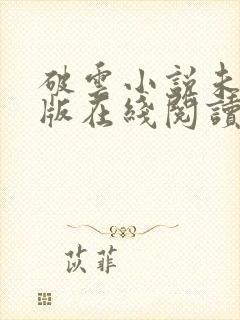 破雲小說未
版在綫閱讀
苡菲